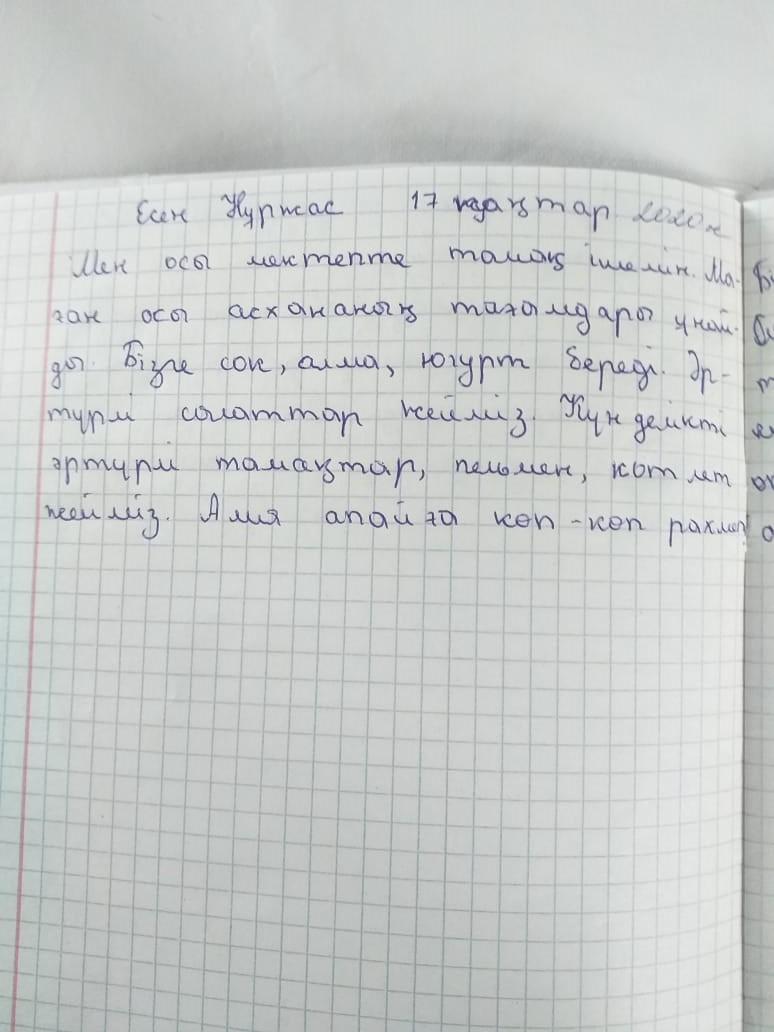 Есен Нұржас 17 қаңтар 2020ж
Мен осы мектепте тамақ ішемін. Ма-
ған осы асхананың тағамдары ұнай-
ды. Бізге сок, алма, югурт береді. Әр-
түрлі салаттар жейміз. Күнделікті
әртүрлі тамақтар, пельмен, котлет
жейміз. Алия апайға көп-көп рахмет